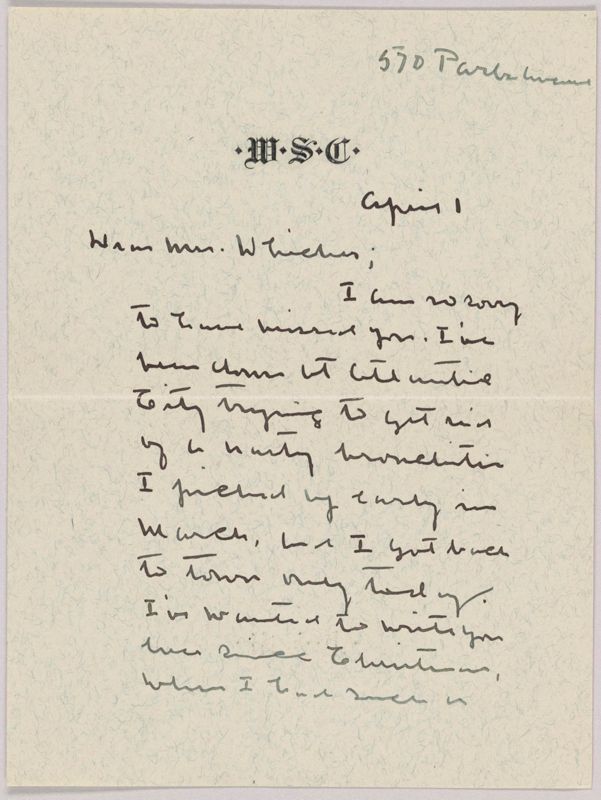 570 Park Avenue
·W·S·C·
April 1
Dear Mrs. Whicher;
I am so sorry
to have missed you. I've
been down at Atlantic
City trying to get rid
of a nasty bronchitis
I picked up early in
March, and I got back
to town only today.
I've wanted to write you
ever since Christmas,
when I had such a